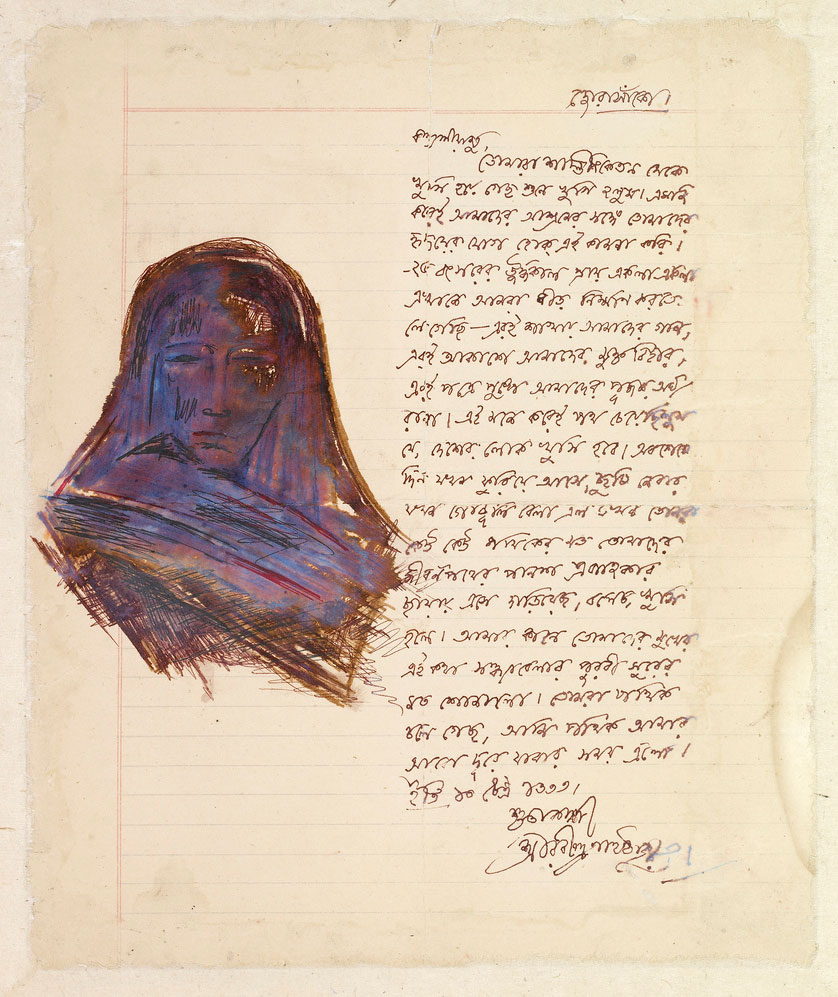 জোড়াসাঁকো।
কল্যাণীয়াসু,
তোমরা শান্তিনিকেতন থেকে
খুসি হয়ে গেছ শুনে খুসি হলুম। এমনি
করেই আমাদের আশ্রমের সঙ্গে তোমাদের
হৃদয়ের যোগ হোক্ এই কামনা করি।
২৫ বৎসরের ঊর্দ্ধকাল প্রায় একলা একলা
এখানে আমরা নীড় নির্ম্মাণ করতে
লেগেছি — এরই শাখায় আমাদের গান,
এরই আকাশে আমাদের মুক্ত বিহার,
এরই পত্রে পুষ্পে আমাদের পূজার অর্ঘ্য
রচনা। এই মনে করেই পথ চেয়েছিলুম
যে, দেশের লোক খুসি হবে। অবশেষে
দিন যখন ফুরিয়ে আসে, ছুটি নেবার
যখন গোধূলি বেলা এল তখন তোমরা
কেউ কেউ পথিকের মত তোমাদের
জীবনপথের পাশে এখানকার
ছায়ায় এসে দাঁড়িয়েছ, বলেছ, খুসি
হলে। আমার কানে তোমাদের মুখের
এই কথা সন্ধ্যাবেলার পূরবী সুরের
মত শোনালো। তোমরা পথিক
চলে গেছ, আমি পথিক আমার
আরো দূরে যাবার সময় এলো।
ইতি ১৩ চৈত্র ১৩৩৩।
শুভাকাঙ্ক্ষী
শ্রীরবীন্দ্রনাথ ঠাকুর